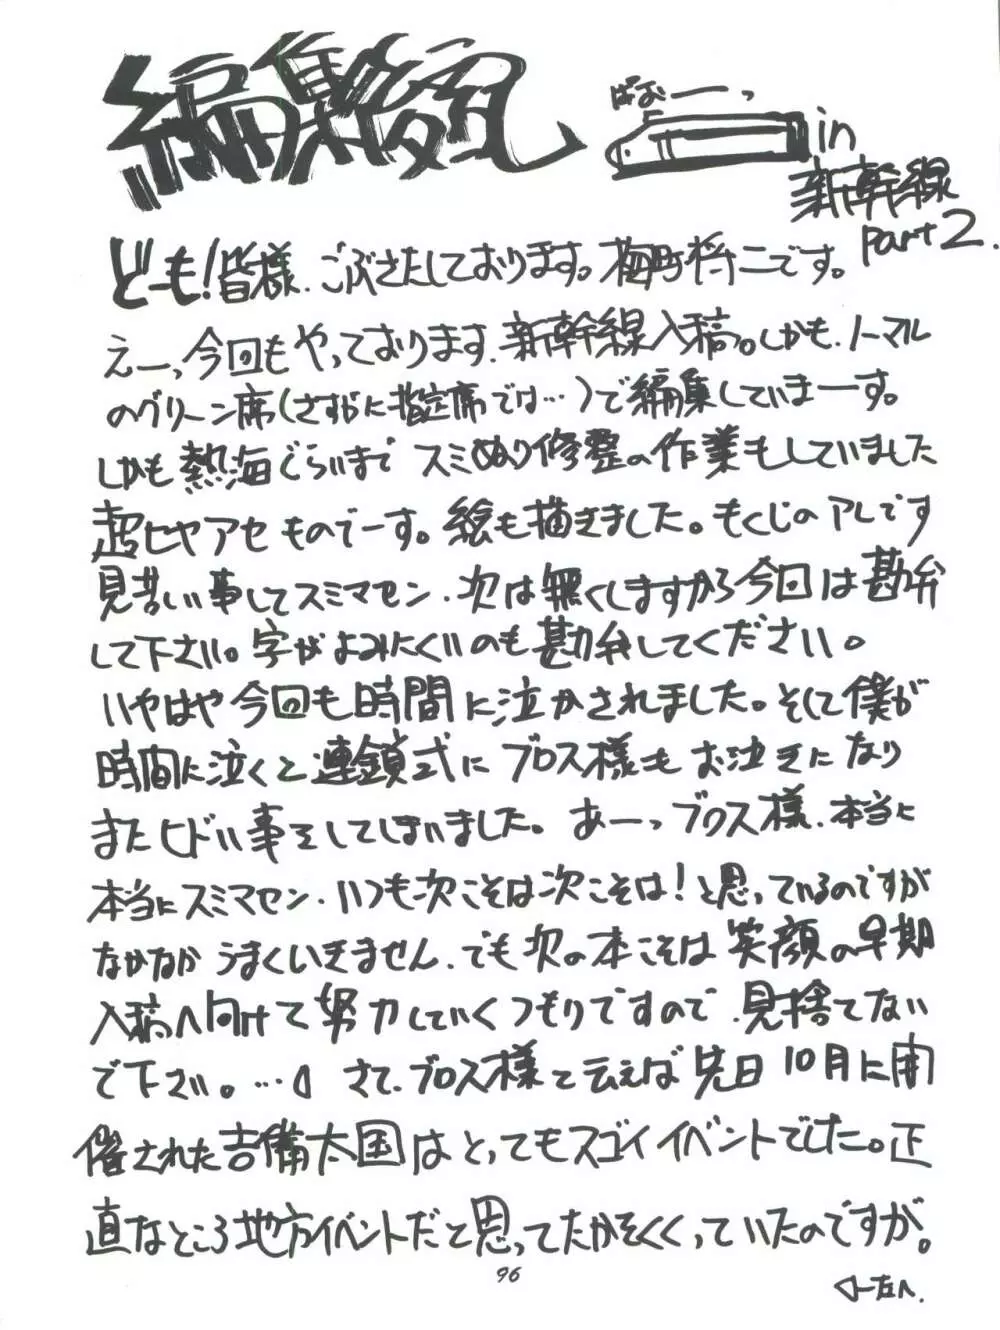 編集後記
ぱおーーっ
in
新幹線
part 2.
どーも!皆様、ごぶさたしております。梅町将二です。
えーっ今回もやっております、新幹線入稿。しかも、ノーマル
のグリーン席(さすがに指定席では…)で編集していまーーす。
しかも熱海ぐらいまでスミぬり修整の作業もしていました
超ヒヤアセものでーす。絵も描きました。もくじのアレです
見苦しい事してスミマセン、次は無くしますから今回は勘弁
して下さい。字がよみにくいのも勘弁してください。
いやはや今回も時間に泣かされました。そして僕が
時間に泣くと連鎖式にブロス様もお泣きになり
またヒドい事をしてしまいました。あーっブロス様、本当に
本当にスミマセン、いつも次こそは次こそは!と思っているのですが
なかなかうまくいきません、でも次の本こそは笑顔の早期
入稿へ向けて努力していくつもりですので、見捨てない
で下さい。… さて、ブロス様と云えば先日10月に開
催された吉備太国はとってもスゴイイベントでした。正
直なところ地方イベントだと思ってたかをくくっていたのですが。
96
←左へ.